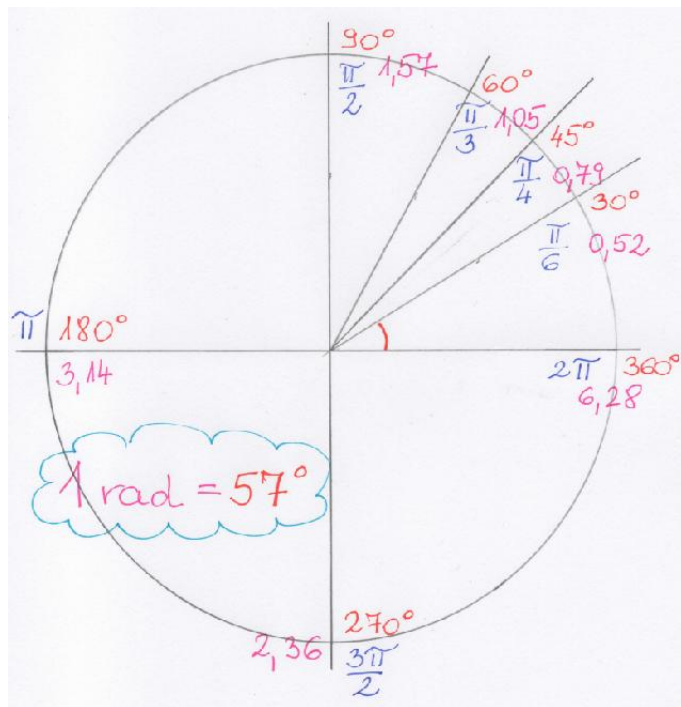 90°
π/2 1,57
60°
π/3 1,05
45°
π/4 0,79
30°
π/6 0,52
π 180°
3,14
2π 360°
6,28
1 rad = 57°
270°
2,36
3π/2